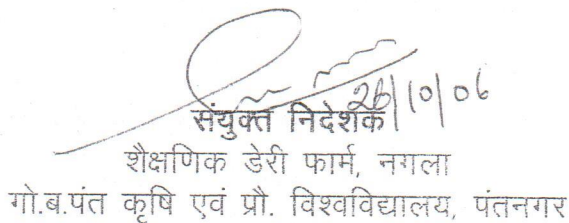 26/10/06
संयुक्त निदेशक
शैक्षणिक डेरी फार्म, नगला
गो.ब.पंत कृषि एवं प्रौ. विश्वविद्यालय, पंतनगर